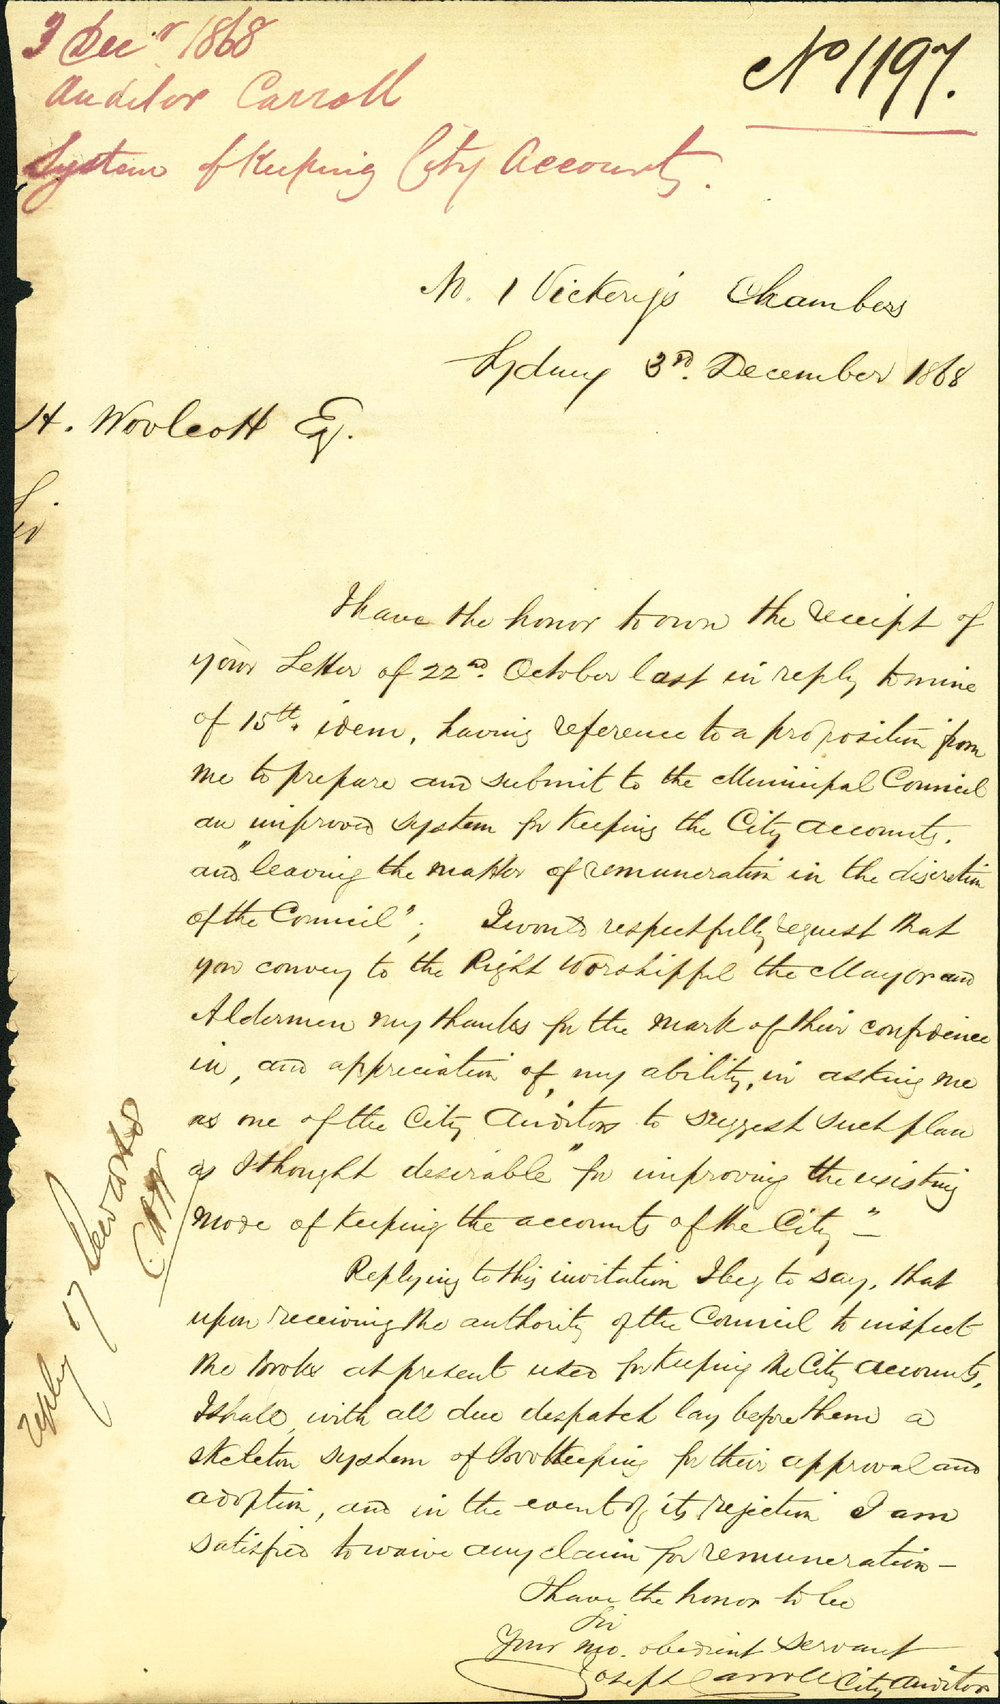 3 Decr 1868
Auditor Carroll
System of Keeping City Accounts.
No 1197.
No. 1 Vickery's Chambers
Sydney 3rd. December 1868
H. Woolcott Esq.
Sir
I have the honor to own the receipt of
your Letter of 22nd. October last in reply to mine
of 15th. idem, having reference to a proposition from
me to prepare and submit to the Municipal Council
an improved system for Keeping the City accounts.
and "leaving the matter of remuneration in the discretion
of the Council"; I would respectfully request that
you convey to the Right Worshipful the Mayor and
Aldermen my thanks for the mark of their confidence
in, and appreciation of, my ability, in asking me
as one of the City Auditors to suggest such plan
as I thought desirable "for improving the existing
mode of Keeping the accounts of the City"—
Replying to this invitation I beg to say, that
upon receiving the authority of the Council to inspect
the books at present used for Keeping the City accounts,
I shall, with all due despatch lay before them a
skeleton system of Bookkeeping for their approval and
adoption, and in the event of its rejection I am
satisfied to waive any claim for remuneration—
I have the honor to be
Sir
Your mo. obedient Servant
Joseph Carroll City Auditor
reply